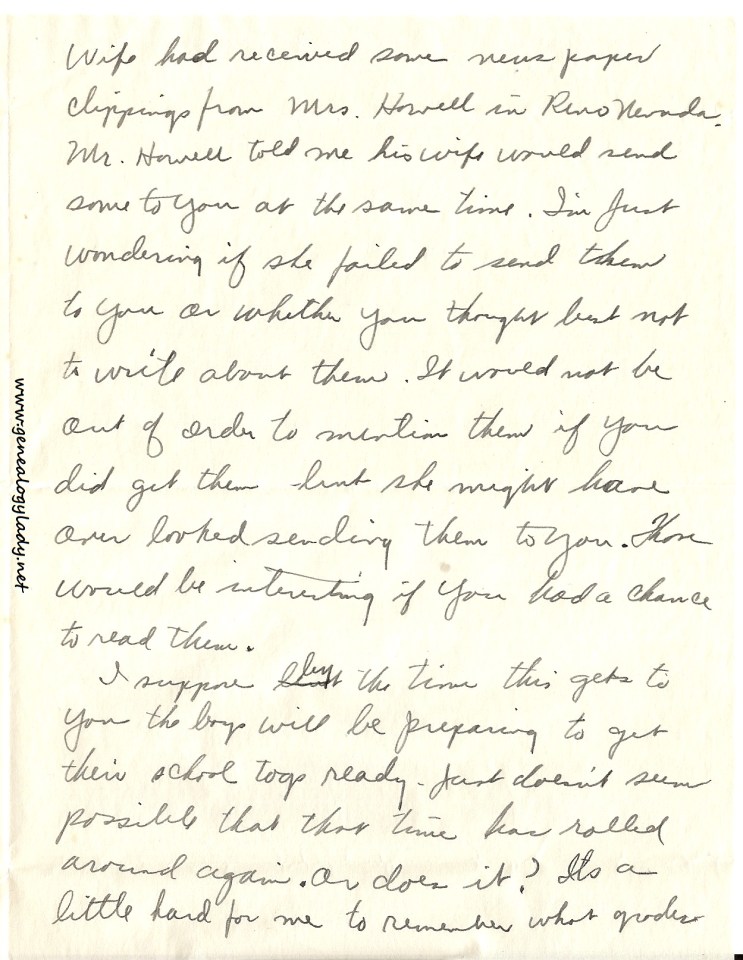 Wife had received some news paper
clippings from Mrs. Howell in Reno Nevada.
Mr. Howell told me his wife would send
some to you at the same time. I'm just
wondering if she failed to send them
to you or whether you thought best not
to write about them. It would not be
out of order to mention them if you
did get them but she might have
over looked sending them to you. Those
would be interesting if you had a chance
to read them.
I suppose by the time this gets to
you the boys will be preparing to get
their school togs ready. Just doesn't seem
possible that that time has rolled
around again. Or does it? Its a
little hard for me to remember what grades
www.genealogylady.net